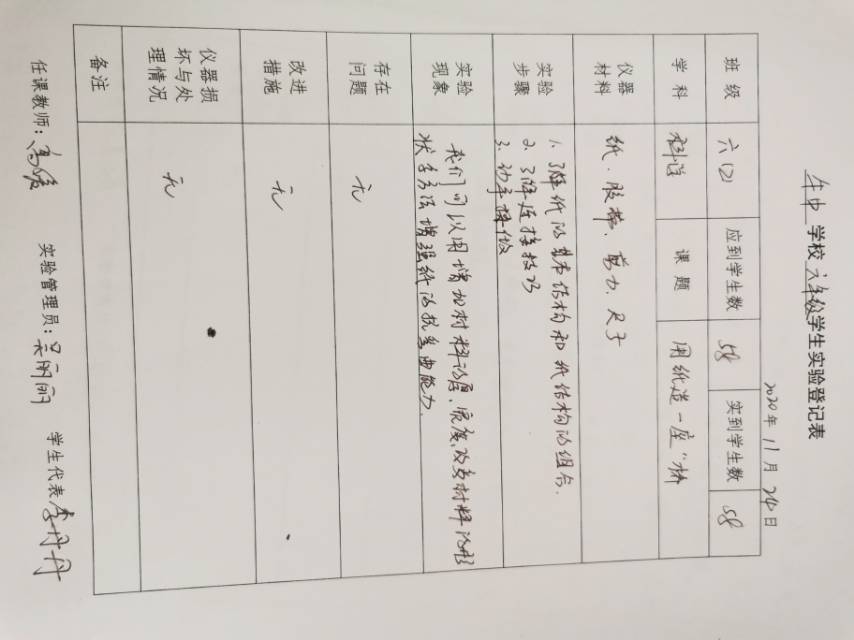 牟中学校六年级学生实验登记表
2020年11月24日
班级 六(2) 应到学生数 58 实到学生数 58
学科 科学 课题 用纸造一座“桥
仪器材料 纸、胶带、剪刀、尺子
实验步骤 1. 了解纸的基本结构和纸结构的组合.
2. 了解连接技巧
3. 动手操做
实验现象 我们可以用增加材料的厚、宽度,改变材料的形
状等方法增强纸的抗弯曲能力.
存在问题 无
改进措施 无
仪器损坏与处理情况 无
备注
任课教师: 实验管理员:吴丽丽 学生代表:李丹丹